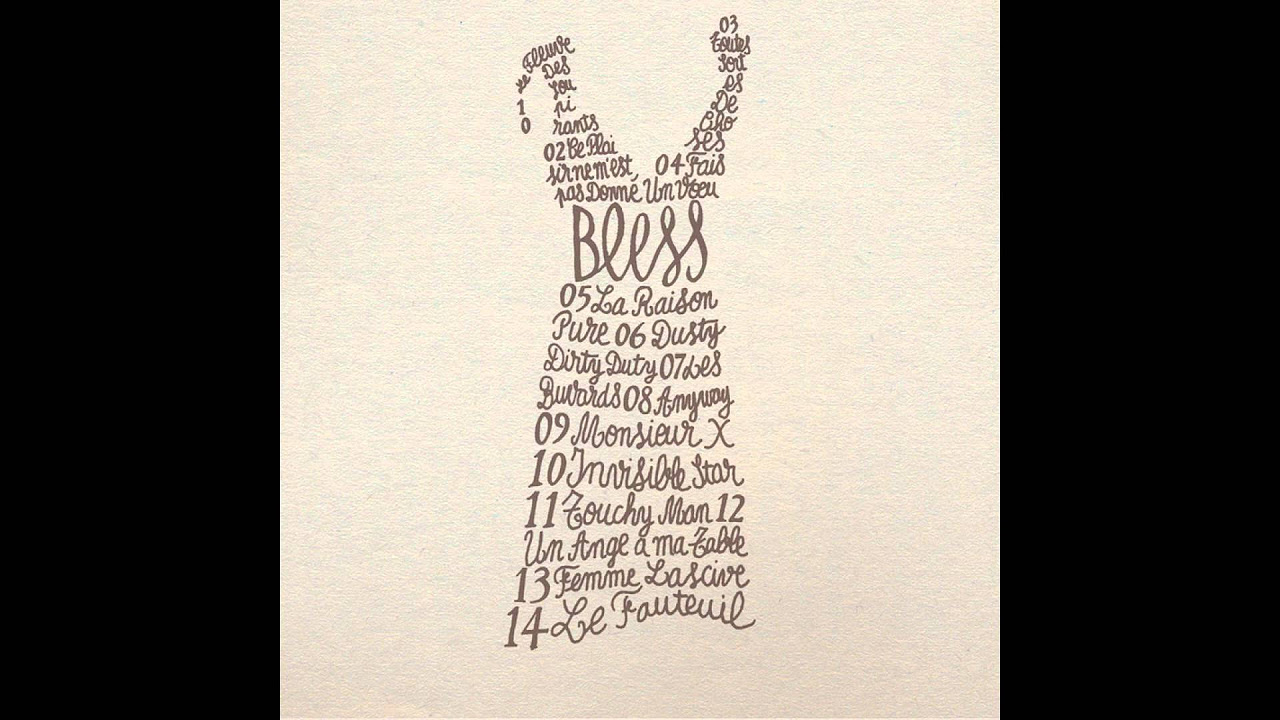 01 Le Fleuve
Des
Sou
pi
rants
02 Ce Plai
sir ne m'est,
pas Donné
03
Toutes
Sort
es
De
Cho
ses
04 Fais
Un Voeu
Bless
05 La Raison
Pure 06 Dusty
Dirty Duty 07 Les
Buvards 08 Anyway
09 Monsieur X
10 Invisible Star
11 Touchy Man 12
Un Ange à ma Table
13 Femme Lascive
14 Le Fauteuil